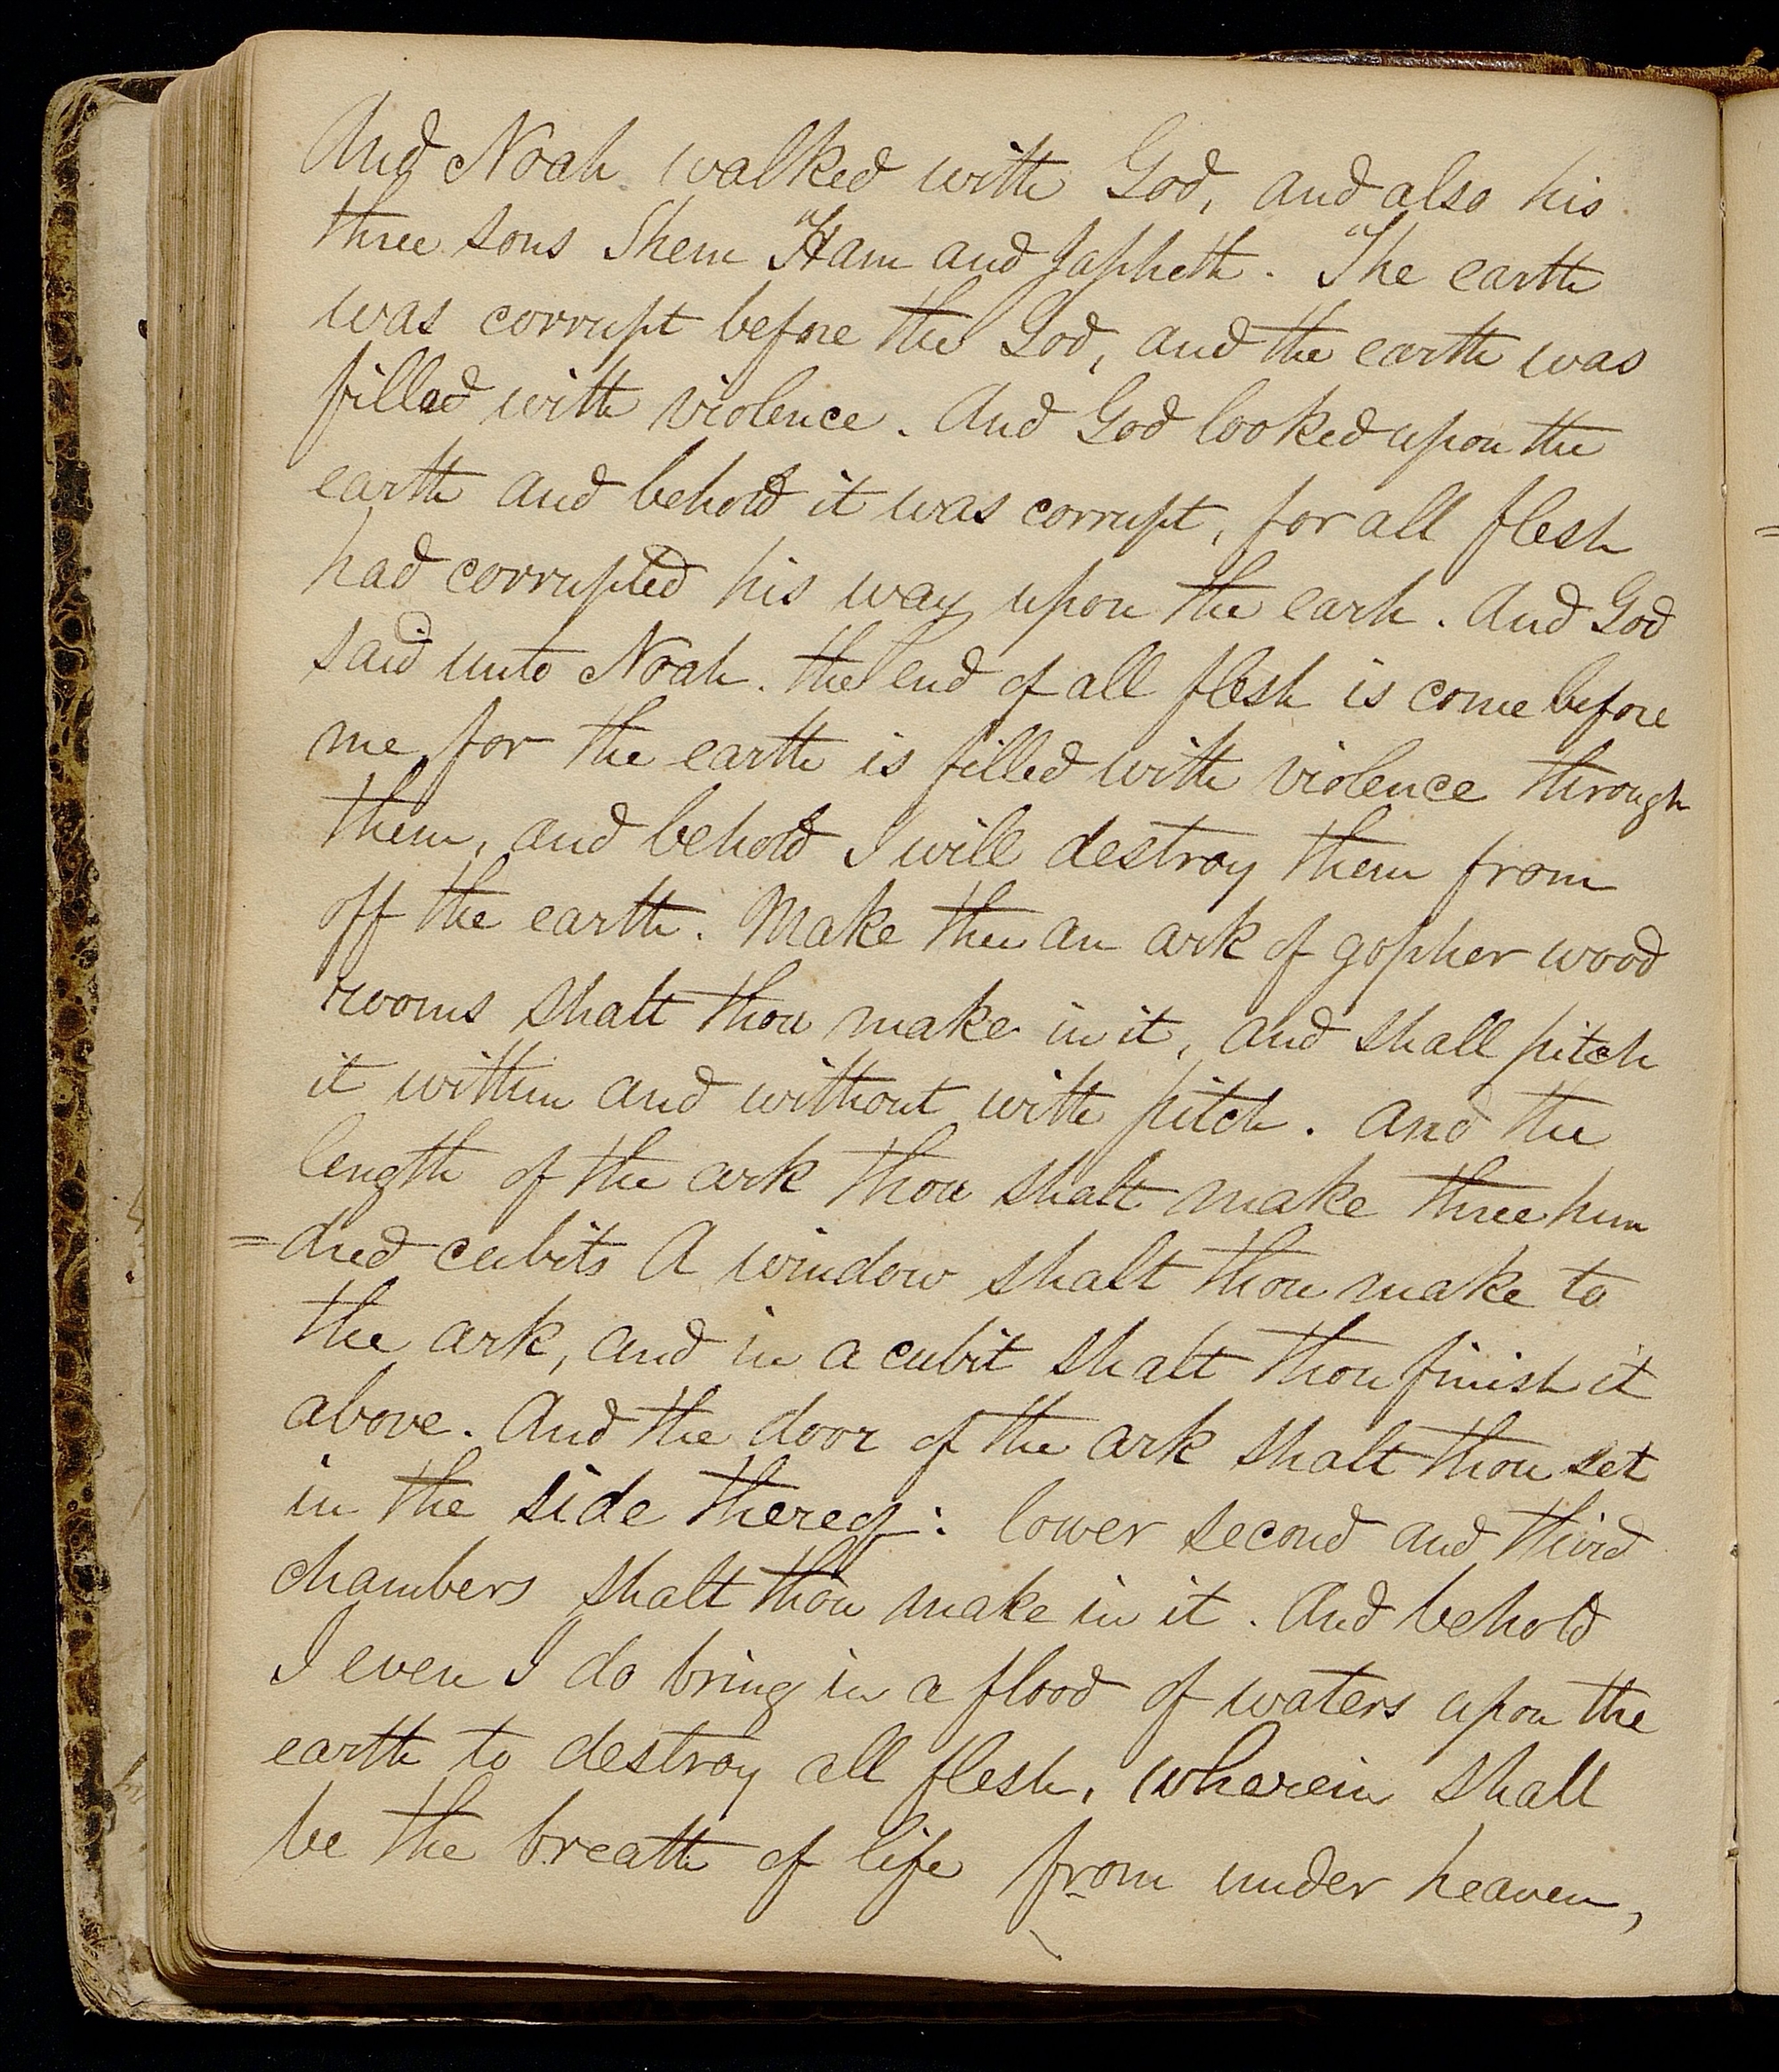 And Noah walked with God, and also his
three sons Shem Ham and Japheth. The earth
was corrupt before the God, and the earth was
filled with violence. And God looked upon the
earth and behold it was corrupt, for all flesh
had corrupted his way upon the earh. And God
said unto Noah. the end of all flesh is come before
me for the earth is filled with violence through
them, and behold I will destroy them from
off the earth. Make thee an ark of gopher wood
rooms shalt thou make in it, and shall pitch
it within and without with pitch. And the
length of the ark thou shalt make three hun
=dred cubits A window shalt thou make to
the ark, and in a cubit shalt thou finish it
above. And the door of the ark shalt thou set
in the side thereof: lower second and third
chambers shalt thou make in it. And behold
I even I do bring in a flood of waters upon the
earth to destroy all flesh, wherein shall
be the breath of life from under heaven,